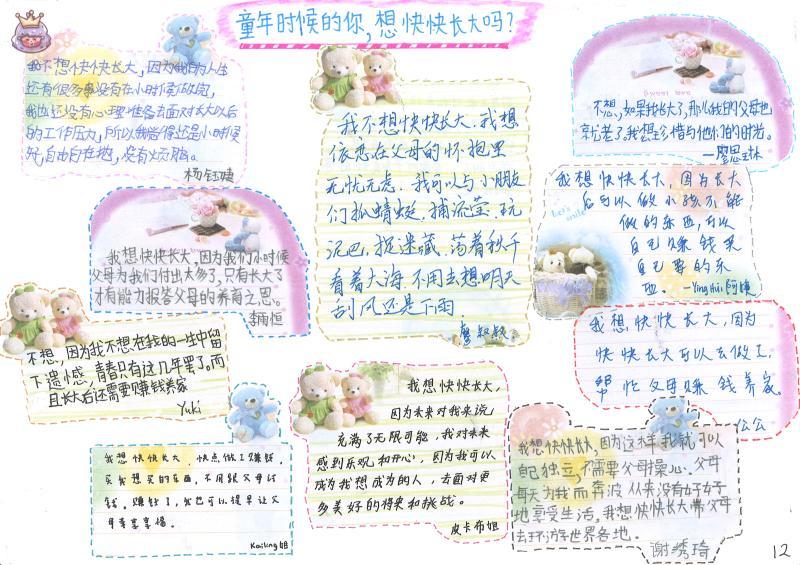 童年时候的你,想快快长大吗?
我不想快快长大,因为我的人生
还有很多事没有在小时候做完,
我也还没有心理准备去面对长大以后
的工作压力,所以我觉得还是小时候
好,自由自在地,没有烦恼。
杨钰婕
我不想快快长大.我想
依恋在父母的怀抱里
无忧无虑.我可以与小朋友
们抓蜻蜓.捕流萤.玩
泥巴.捉迷藏.荡着秋千
看着大海.不用去想明天
刮风还是下雨.
叔叔.
Sweet love
不想,如果我长大了,那么我的父母也
就老了,我想珍惜与他们的时光。
—廖思琳
我想快快长大,因为长大
后可以做小孩不能
做的东西,可以
自己赚钱买
自己要的东
西。 -Ying Hui 阿姨
Let's smile
我想快快长大,因为我们小时候
父母为我们付出太多了,只有长大了
才有能力报答父母的养育之恩。
李雨恒
我想快快长大,因为
快快长大可以去做工
帮忙父母赚钱养家。
公公
不想,因为我不想在我的一生中留
下遗憾,青春只有这几年罢了。而
且长大后还需要赚钱养家
Yuki
我想快快长大,
因为未来对我来说
充满了无限可能,我对未来
感到乐观和开心,因为我可以
成为我想成为的人,去面对更
多美好的将来和挑战。
皮卡布姐
我想快快长大,快点做工赚钱.
买我想买的东西,不用跟父母讨
钱。赚钱了,我也可以提早让父
母享享福。
Kailing 姐
我想快快长大,因为这样我就可以
自己独立,不需要父母操心。父母
每天为我而奔波从来没有好好
地享受生活,我想快快长大带父母
去环游世界各地。
谢绣琦
12